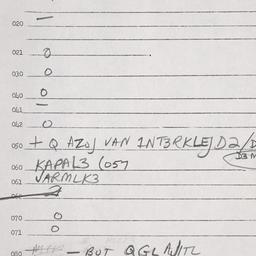 020 —
021 0
030 0
040 0
041 —
042 0
050 + Q AZOJ VAN 1NT3RKLEJ D2/D
D3
060 KAPAL3 (057
061 VARMLK3
070 0
071 0
080 — BUT QGL